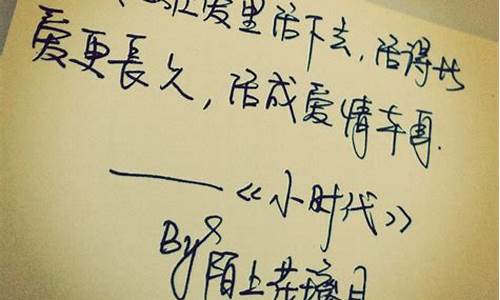 在爱里活下去，活得比
爱更長久，活成爱情本身.
——《小时代》
By 陌上花